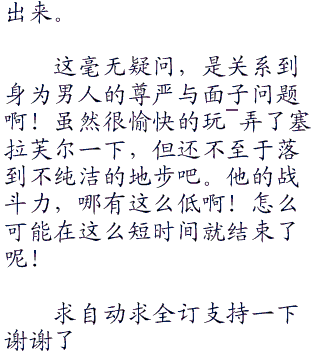 出来。
这毫无疑问，是关系到
身为男人的尊严与面子问题
啊！虽然很愉快的玩¯弄了塞
拉芙尔一下，但还不至于落
到不纯洁的地步吧。他的战
斗力，哪有这么低啊！怎么
可能在这么短时间就结束了
呢！
求自动求全订支持一下
谢谢了